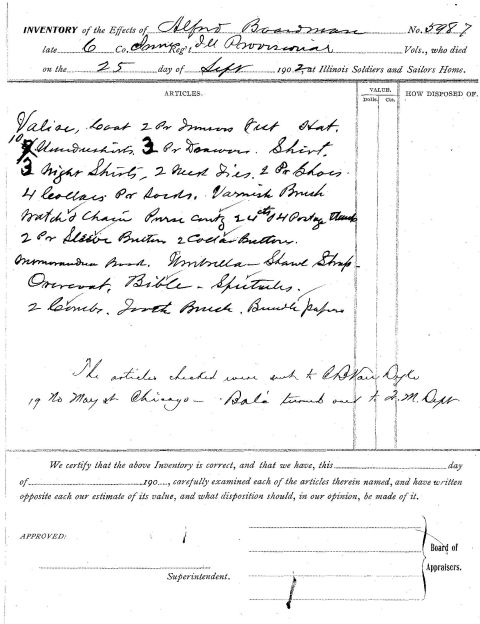 INVENTORY of the Effects of Alfred Boardman No. 5987
late C Co. Reg't Ill Provisional Vols., who died
on the 25 day of Sept 1902, at Illinois Soldiers and Sailors Home.
ARTICLES. VALUE. HOW DISPOSED OF.
Dolls. Cts.
Valise, Coat 2 Pr Vest Hat.
10 Undershirts 3 Pr Drawers. Shirt,
3 Night Shirts, 2 Neck Ties, 2 Pr Shoes
4 Collars Pr Socks. Varnish Brush
Watch & Chain Purse 24cts 14 Postage
2 Pr Sleeve Button 2 Collar Buttons.
Memorandum Book. Umbrella - Shawl Strap -
Overcoat, Bible - Spectacles.
2 Combs. Tooth Brush. Bundle papers
The articles checked were sent to
19 No May st Chicago - Bal'a turned over to Q.M. Dept
We certify that the above Inventory is correct, and that we have, this day
of 190 , carefully examined each of the articles therein named, and have written
opposite each our estimate of its value, and what disposition should, in our opinion, be made of it.
APPROVED:
Board of
Appraisers.
Superintendent.